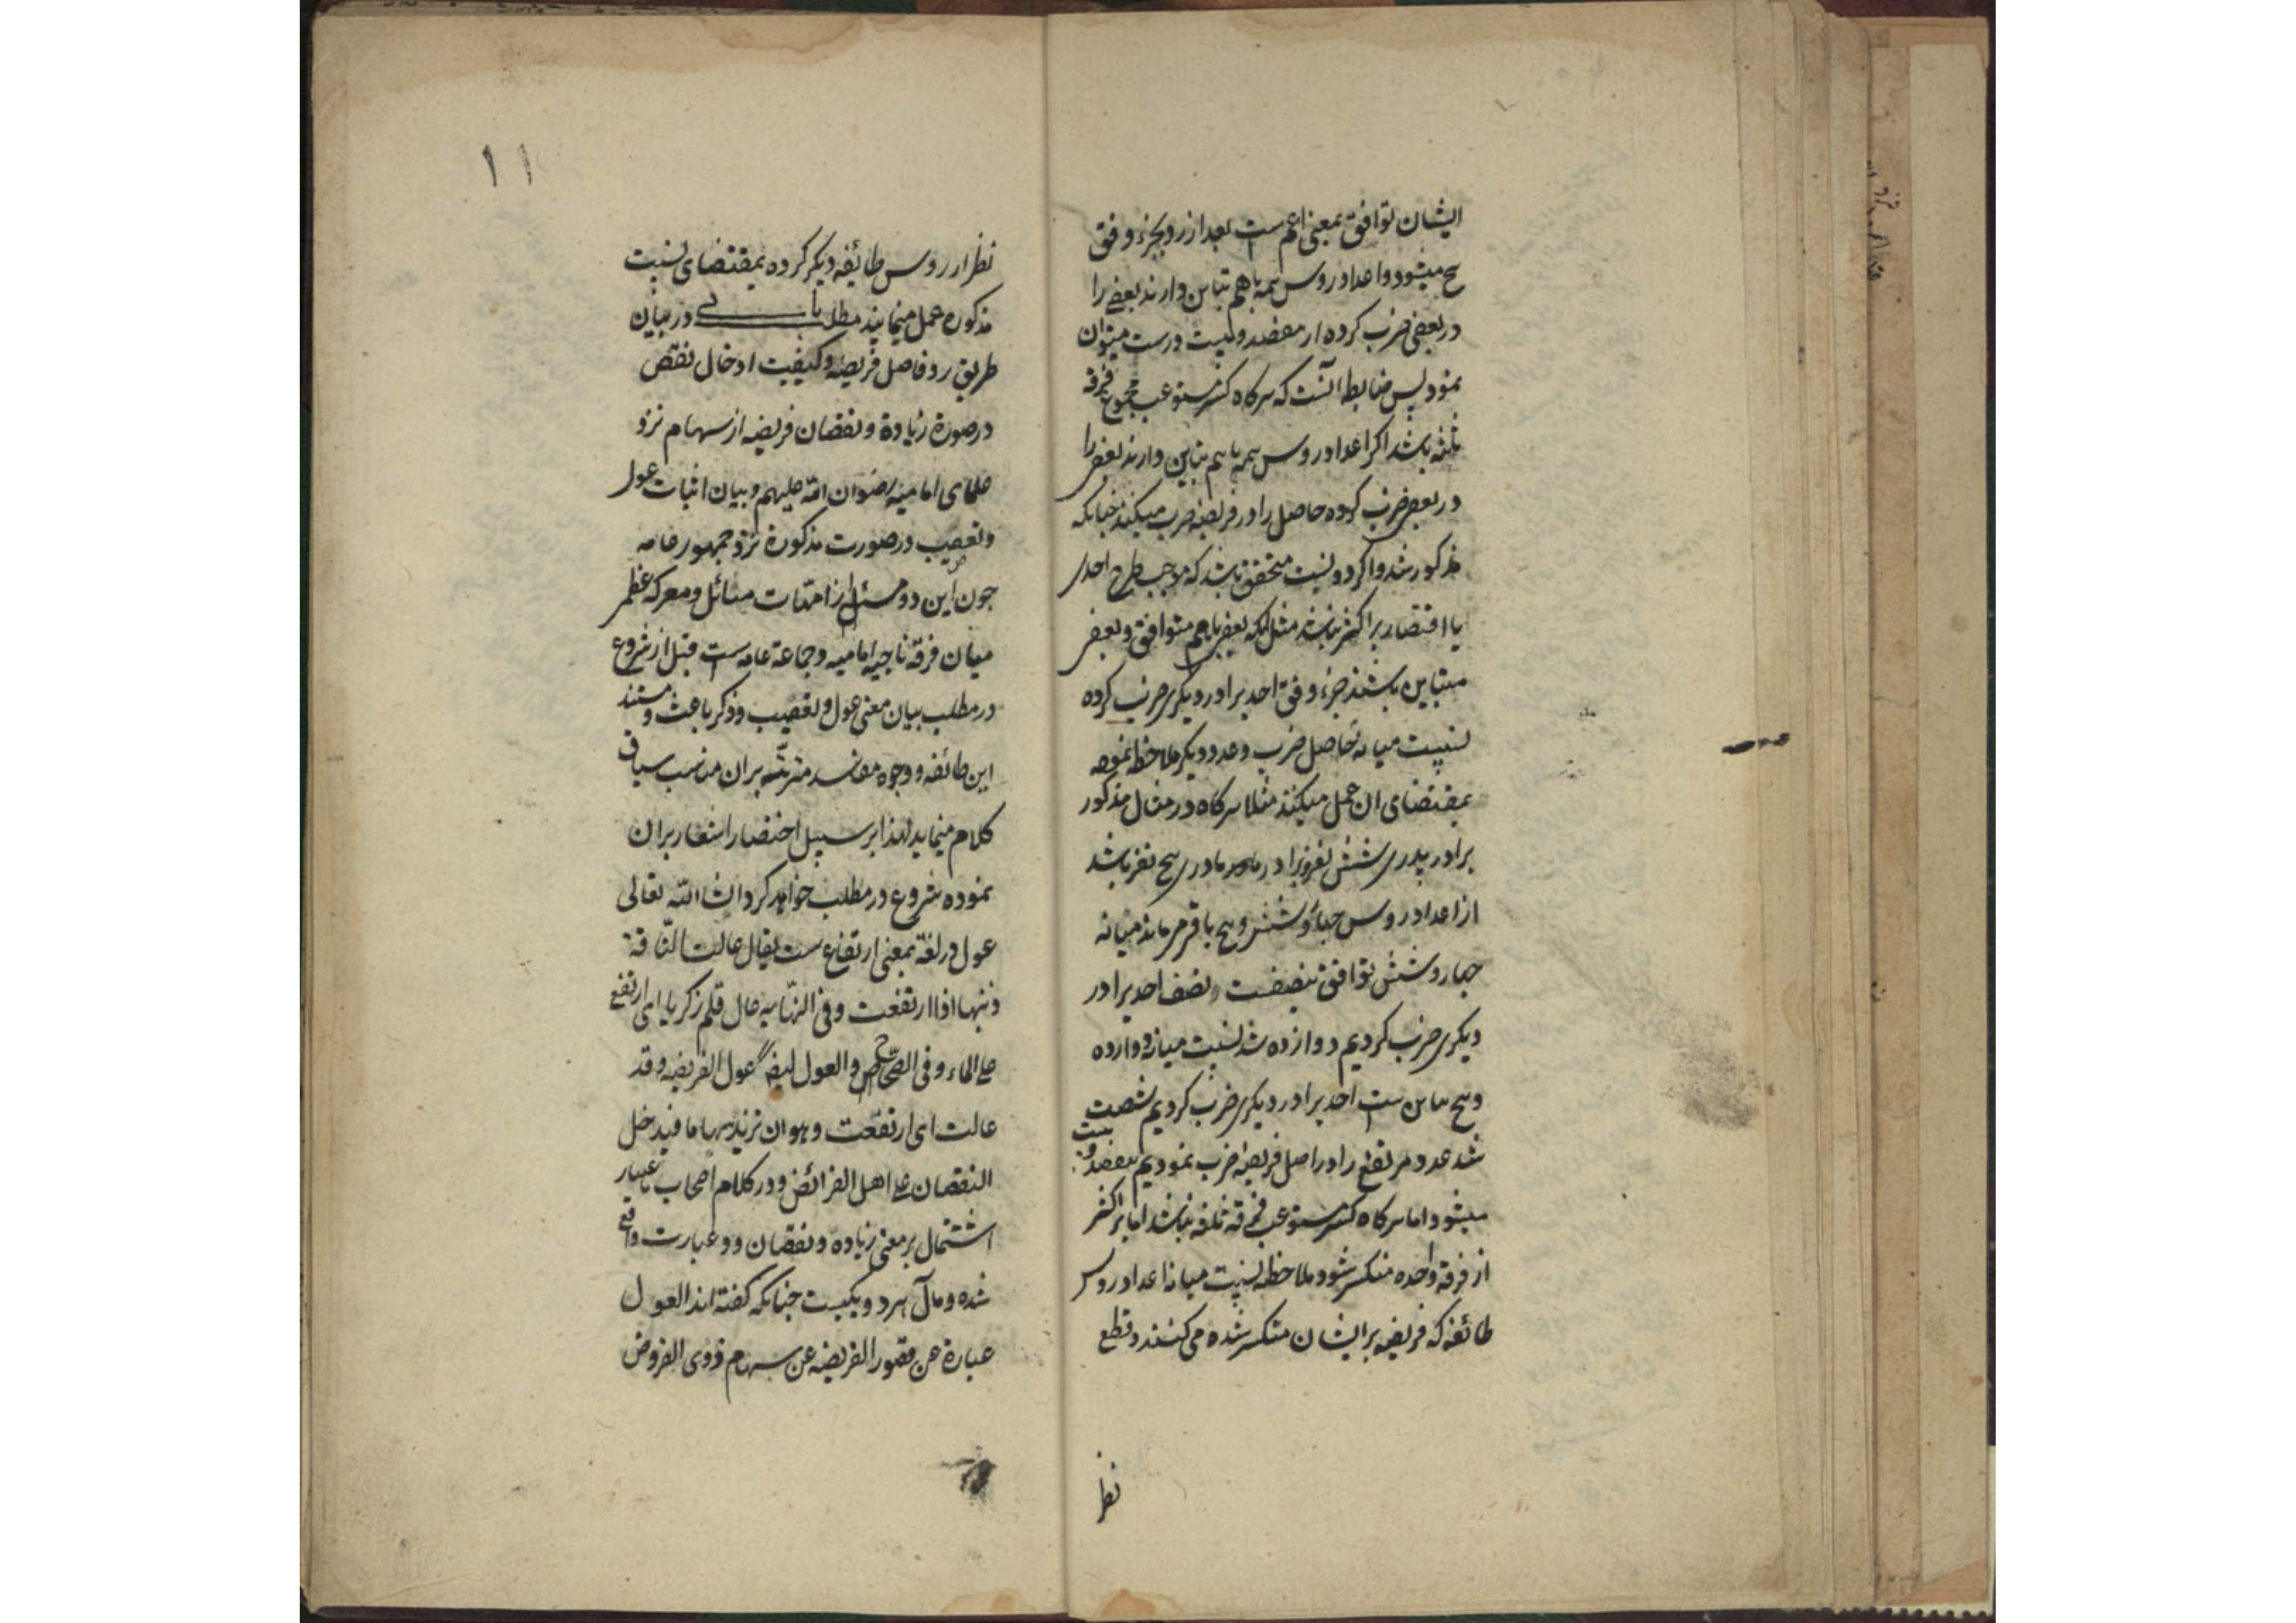 ایشان توافق بمعنی اعم است بعد از رد بجزء وفق
پنج میشود و اعداد روس همه باهم تباین دارند بعضی را
در بعضی ضرب کرده از هفصد و بیست درست میتوان
نمود پس ضابطه آنست که هرکاه کسر مستوعب مجموع فرقه
ثلثه باشد اکر اعداد روس همه باهم تباین دارند بعضی را
در بعضی ضرب کرده حاصل را در فریضه ضرب میکنند چنانکه
مذکور شد و اکر دو نسبت متحقق باشد که موجب طرح احدی
یا اقتصار بر اکثر نباشد مثل آنکه بعضی باهم متوافق و بعضی
متباین باشند جزء وفق احدیرا در دیکری ضرب کرده
نسبت میانه حاصل ضرب و عدد دیکر ملاحظه نموده
بمقتضای ان عمل میکنند مثلا هرکاه در مثال مذکور
برادر پدری شش نفر و برادر مادری پنج نفر باشد
از اعداد روس چهار و شش و پنج باقی میماند میانه
چهار و شش توافق بنصفست و نصف احدیرا در
دیکری ضرب کردیم دوازده شد نسبت میانه دوازده
و پنج تباین است احدیرا در دیکری ضرب کردیم شصت
شد عدد مرتفع را در اصل فریضه ضرب نمودیم هفصد و بیست
میشود اما هرکاه کسر مستوعب فرقه ثلثه نباشد اما بر اکثر
از فرقه واحده منکسر شود ملاحظه نسبت میانه اعداد روس
طائفه که فریضه بر ایشان منکسر شده می کنند و قطع
نظر
۱۱
نظر از روس طائفه دیکر کرده بمقتضای نسبت
مذکوره عمل مینمایند مطلب در بیان
طریق رد فاضل فریضه و کیفیت ادخال نقص
در صورة زیادة و نقصان فریضه از سهام نزد
علمای امامیه رضوان الله علیهم و بیان اثبات عول
و تعصیب در صورت مذکورة نزد جمهور عامه
چون این دو مسئله از امهات مسائل و معرکه عظمی
میان فرقه ناجیه امامیه و جماعة عامه است قبل از شروع
در مطلب بیان معنی عول و تعصیب و ذکر باعث و مستند
این طائفه و وجوه مفاسد مترتبه بران مناسب سیاق
کلام مینماید لهذا بر سبیل اختصار اشعار بران
نموده شروع در مطلب خواهد کرد انشاالله تعالی
عول در لغة بمعنی ارتفاع است یقال عالت الناقة
ذنبها اذا ارتفعت و فی النهایه عال قلم زکریا ای ارتفع
علی الماء و فی الصحاح و العول ایضا عول الفریضه و قد
عالت ای ارتفعت و هو ان تزید سهاما فیدخل
النقصان علی اهل الفرائض و در کلام اصحاب باعتبار
اشتمال بر معنی زیاده و نقصان دو عبارت واقع
شده و مآل هر دو یکیست چنانکه کفته اند العول
عبارة عن قصور الفریضه عن سهام ذوی الفروض